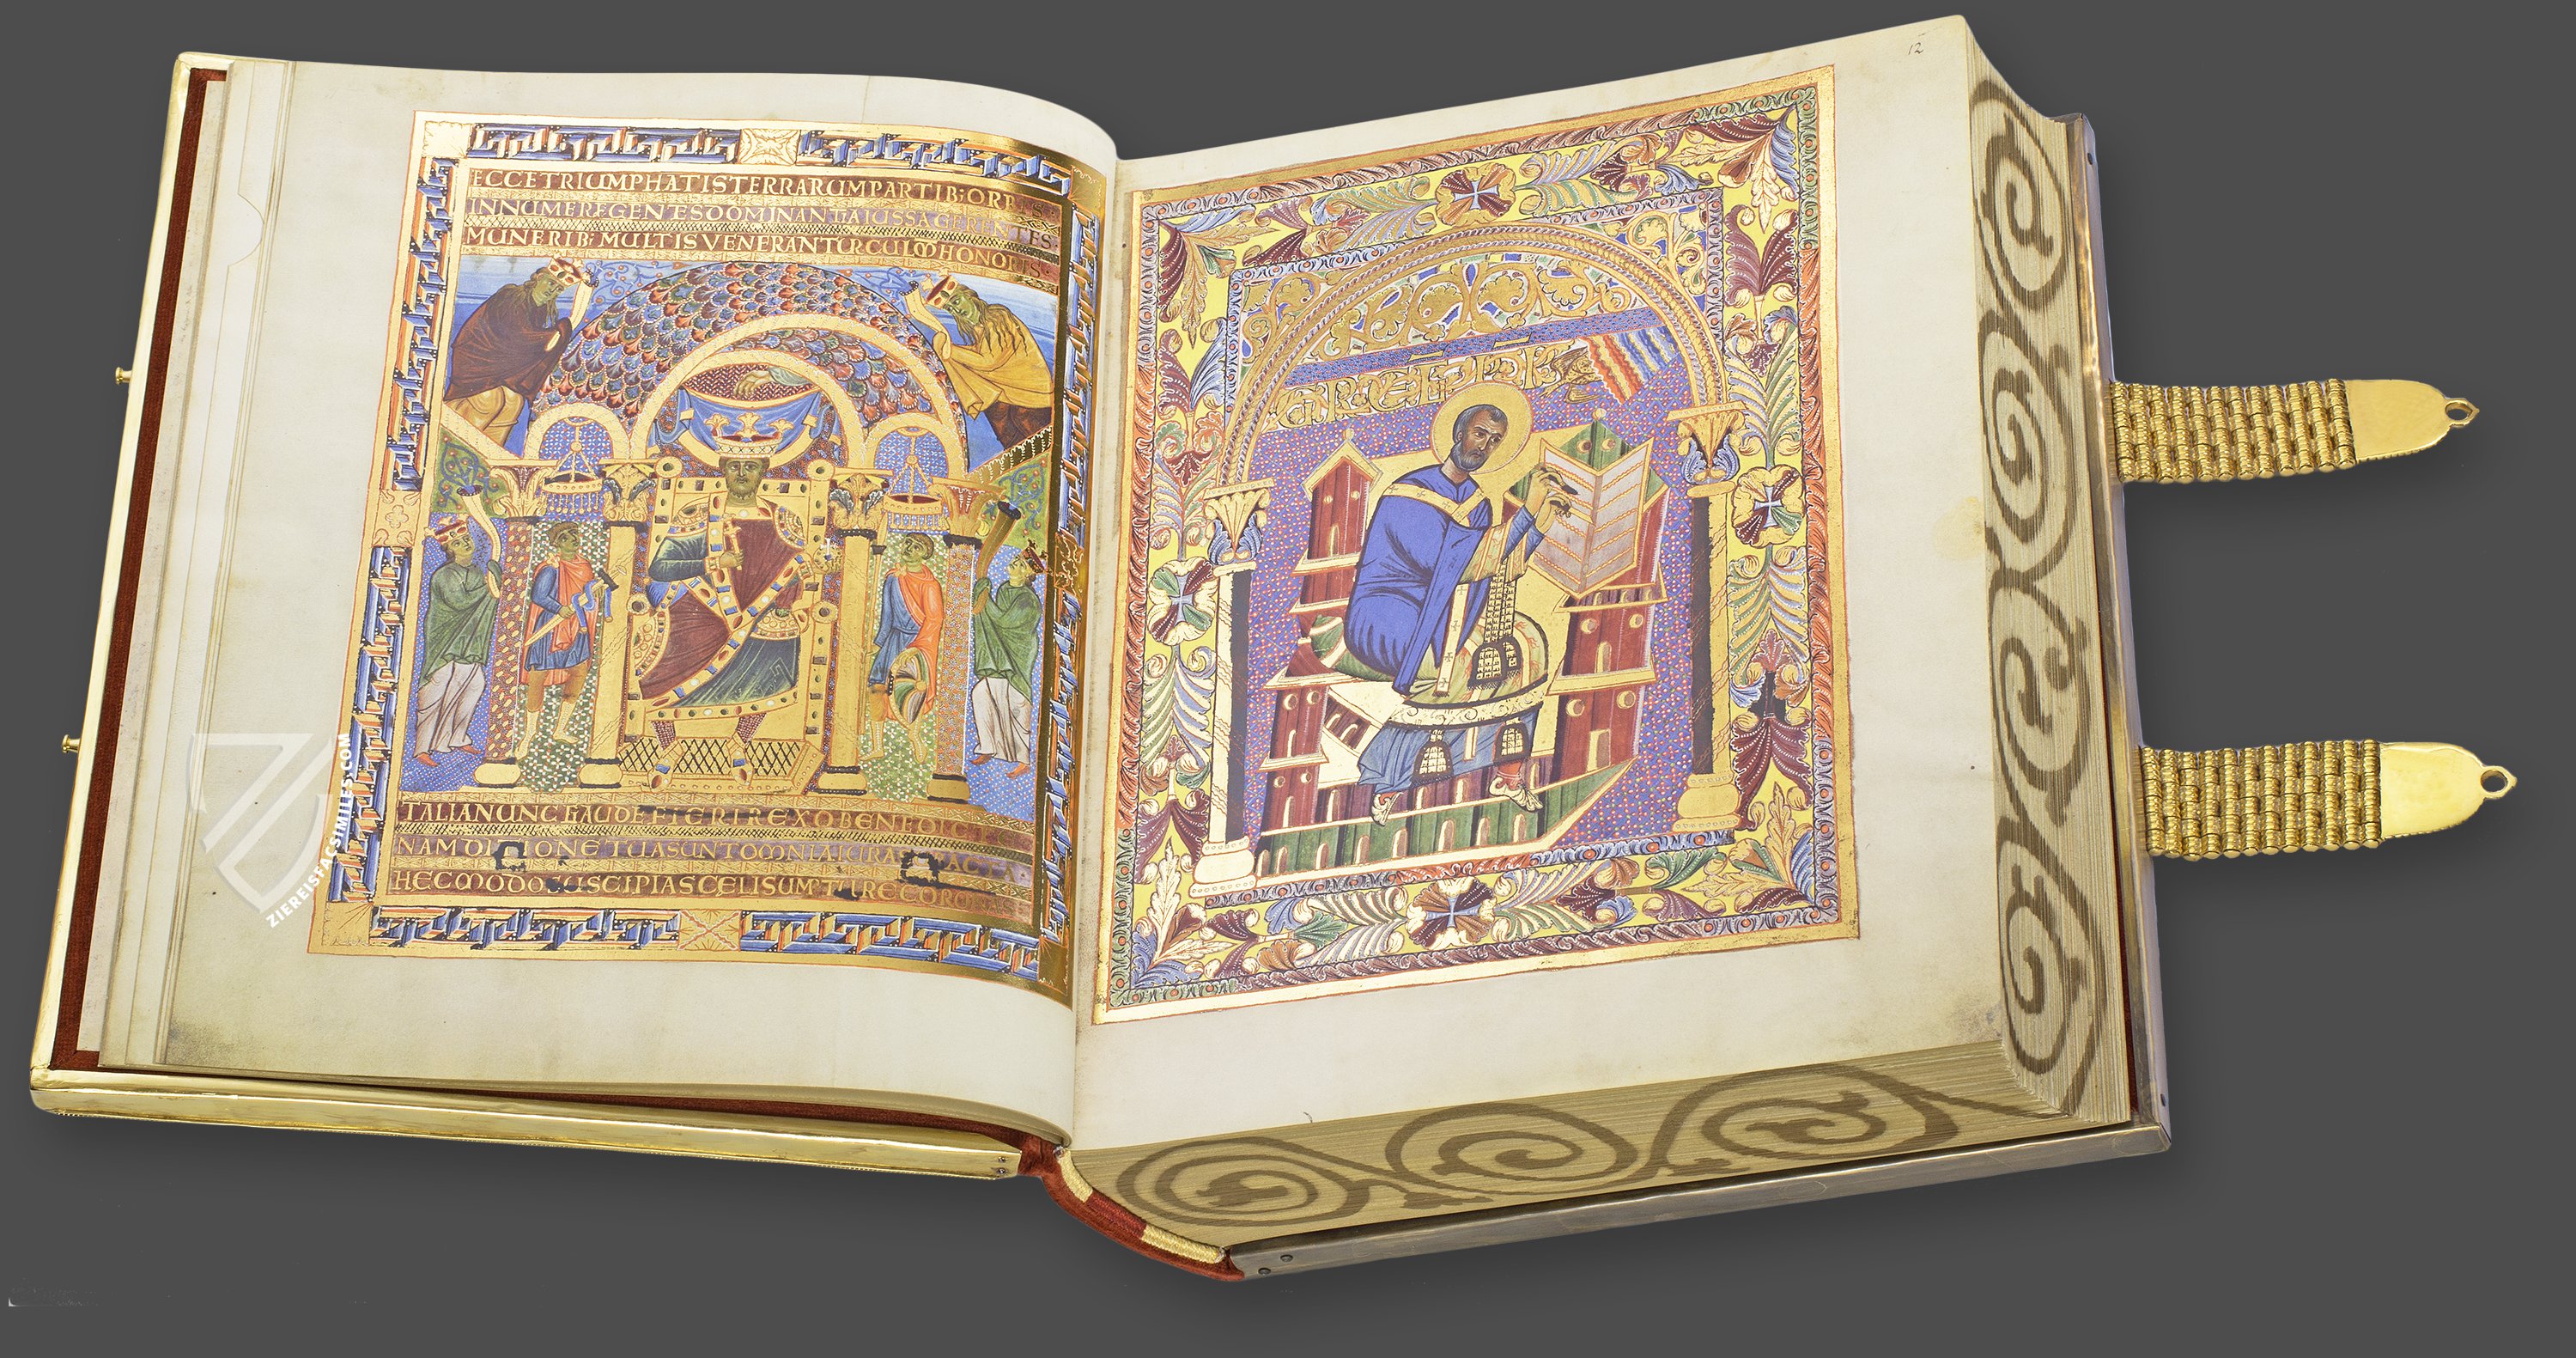 ECCETRIUMPHATISTERRARUMPARTIB:ORBIS·
INNUMEREGENTESDOMINANTIAIUSSAGERENTES·
MUNERIB;MULTISVENERANTURCULMHONORIS·
TALIANUNCGAUDEFIERIREXOBENEDICTE
NAMDICIONETUASUNTOMNIAIURA ACTA·
HECMODOSUSCIPIASCELISUMPTURECORONAS
12
ZIEREISFACSIMILES.COM